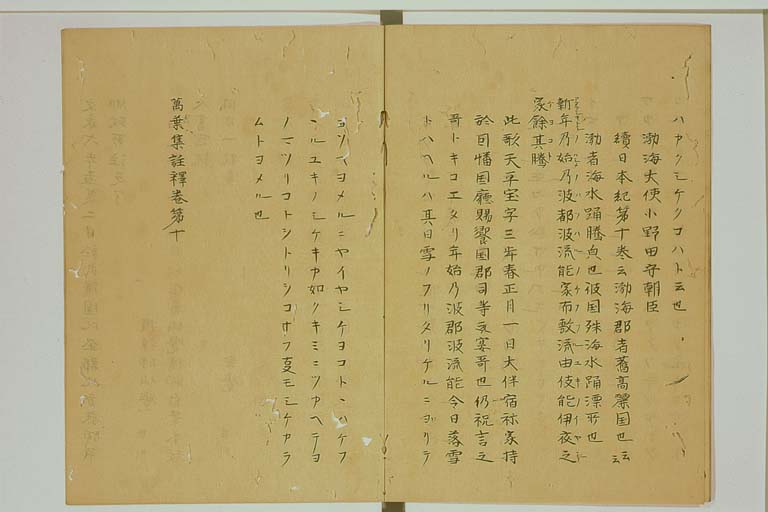 ハヤクシケクコハト云也、
渤海大使小野田守朝臣
續日本紀第十巻云渤海郡者舊高麗国也云云
渤者海水踊騰皃也彼国殊海水踊漂所也
新年乃始乃波都波流能家布敷流由伎能伊夜之
家餘其騰
此歌天平宝字三年春正月一日大伴宿祢家持
於因幡国廳賜饗国郡司等之宴哥也仍祝言之
哥トキコエタリ年始乃波都波流能今日落雪
トハヘルハ其日雪ノフリタリケルニヨリテ
ヨソヘヨメルニヤイヤシケヨコトハケフ
フルユキノシケキカ如クキミニツカヘテヨ
ノマツリコトシトリシコオフ夏モシケカラ
ムトヨメル也
萬葉集註釋巻第十